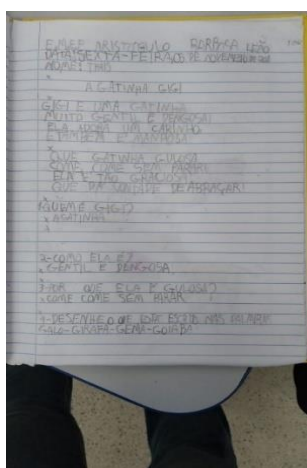 EMEF ARISTIGULO BARBOSA LEÃO
DATA: SEXTA-FEIRA, DE NOVEMBRO
NOME: THAIS
A GATINHA GIGI
GIGI E UMA GATINHA
MUITO GENTIL E DENGOSA!
ELA ADORA UM CARINHO
E TAMBÉM É MANHOSA
QUE GATINHA GULOSA
COME COME SEM PARAR!
ELA E TÃO GRACIOSA
QUE DÁ VONTADE DE ABRAÇAR!
QUEM É GIGI?
A GATINHA
2-COMO ELA E?
GENTIL E DENGOSA
3-POR QUE ELA E GULOSA?
COME COME SEM PARAR
4-DESENHE O QUE ESTA ESCRITO NAS PALAVRA
GALO-GIRAFA-GEMA-GOIABA